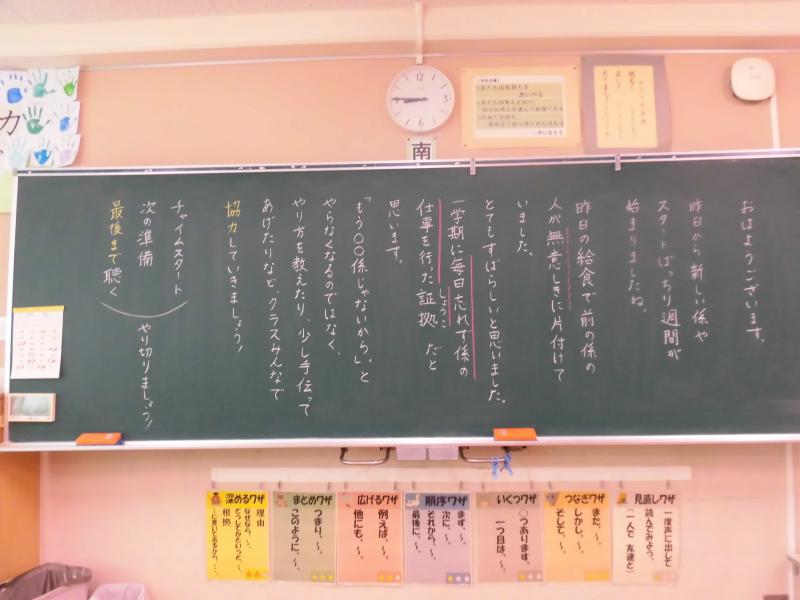 おはようございます。
昨日から新しい係や
スタートばっちり週間が
始まりましたね。
昨日の給食で前の係の
人が無意しきに片付けて
いました。
とてもすばらしいと思いました。
一学期に毎日忘れず係の
仕事を行った証拠だと
しょうこ
思います。
「もう○○係じゃないから。」と
やらなくなるのではなく、
やり方を教えたり、少し手伝って
あげたりなど、クラスみんなで
協力していきましょう！
チャイムスタート
次の準備
最後まで聴く
やり切りましょう！
南
カ
見直しワザ
一度声に出して
読んでみよう。
（一人で 友達と）
つなぎワザ
また、〜。
しかし、〜。
そして、〜。
いくつワザ
○つあります。
一つ目は、〜。
順序ワザ
まず、〜。
次に、〜。
それから、〜。
最後に、〜。
広げるワザ
例えば、〜。
他にも、〜。
まとめワザ
つまり、〜。
このように、〜。
深めるワザ
理由
なぜなら、〜。
どうしてかというと、〜。
根拠
〜に書いてあるから、〜。